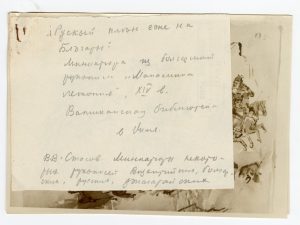 "Русский плѣн еже на
Българы"
Миниатюра из болгарской
рукописи "Манассиина
летопись", XIV в.
Ватиканская библиотека
в Риме
В.В. Стасов. Миниатюры некото-
рых рукописей Византийских, болгар-
ских, русских, джагатайских